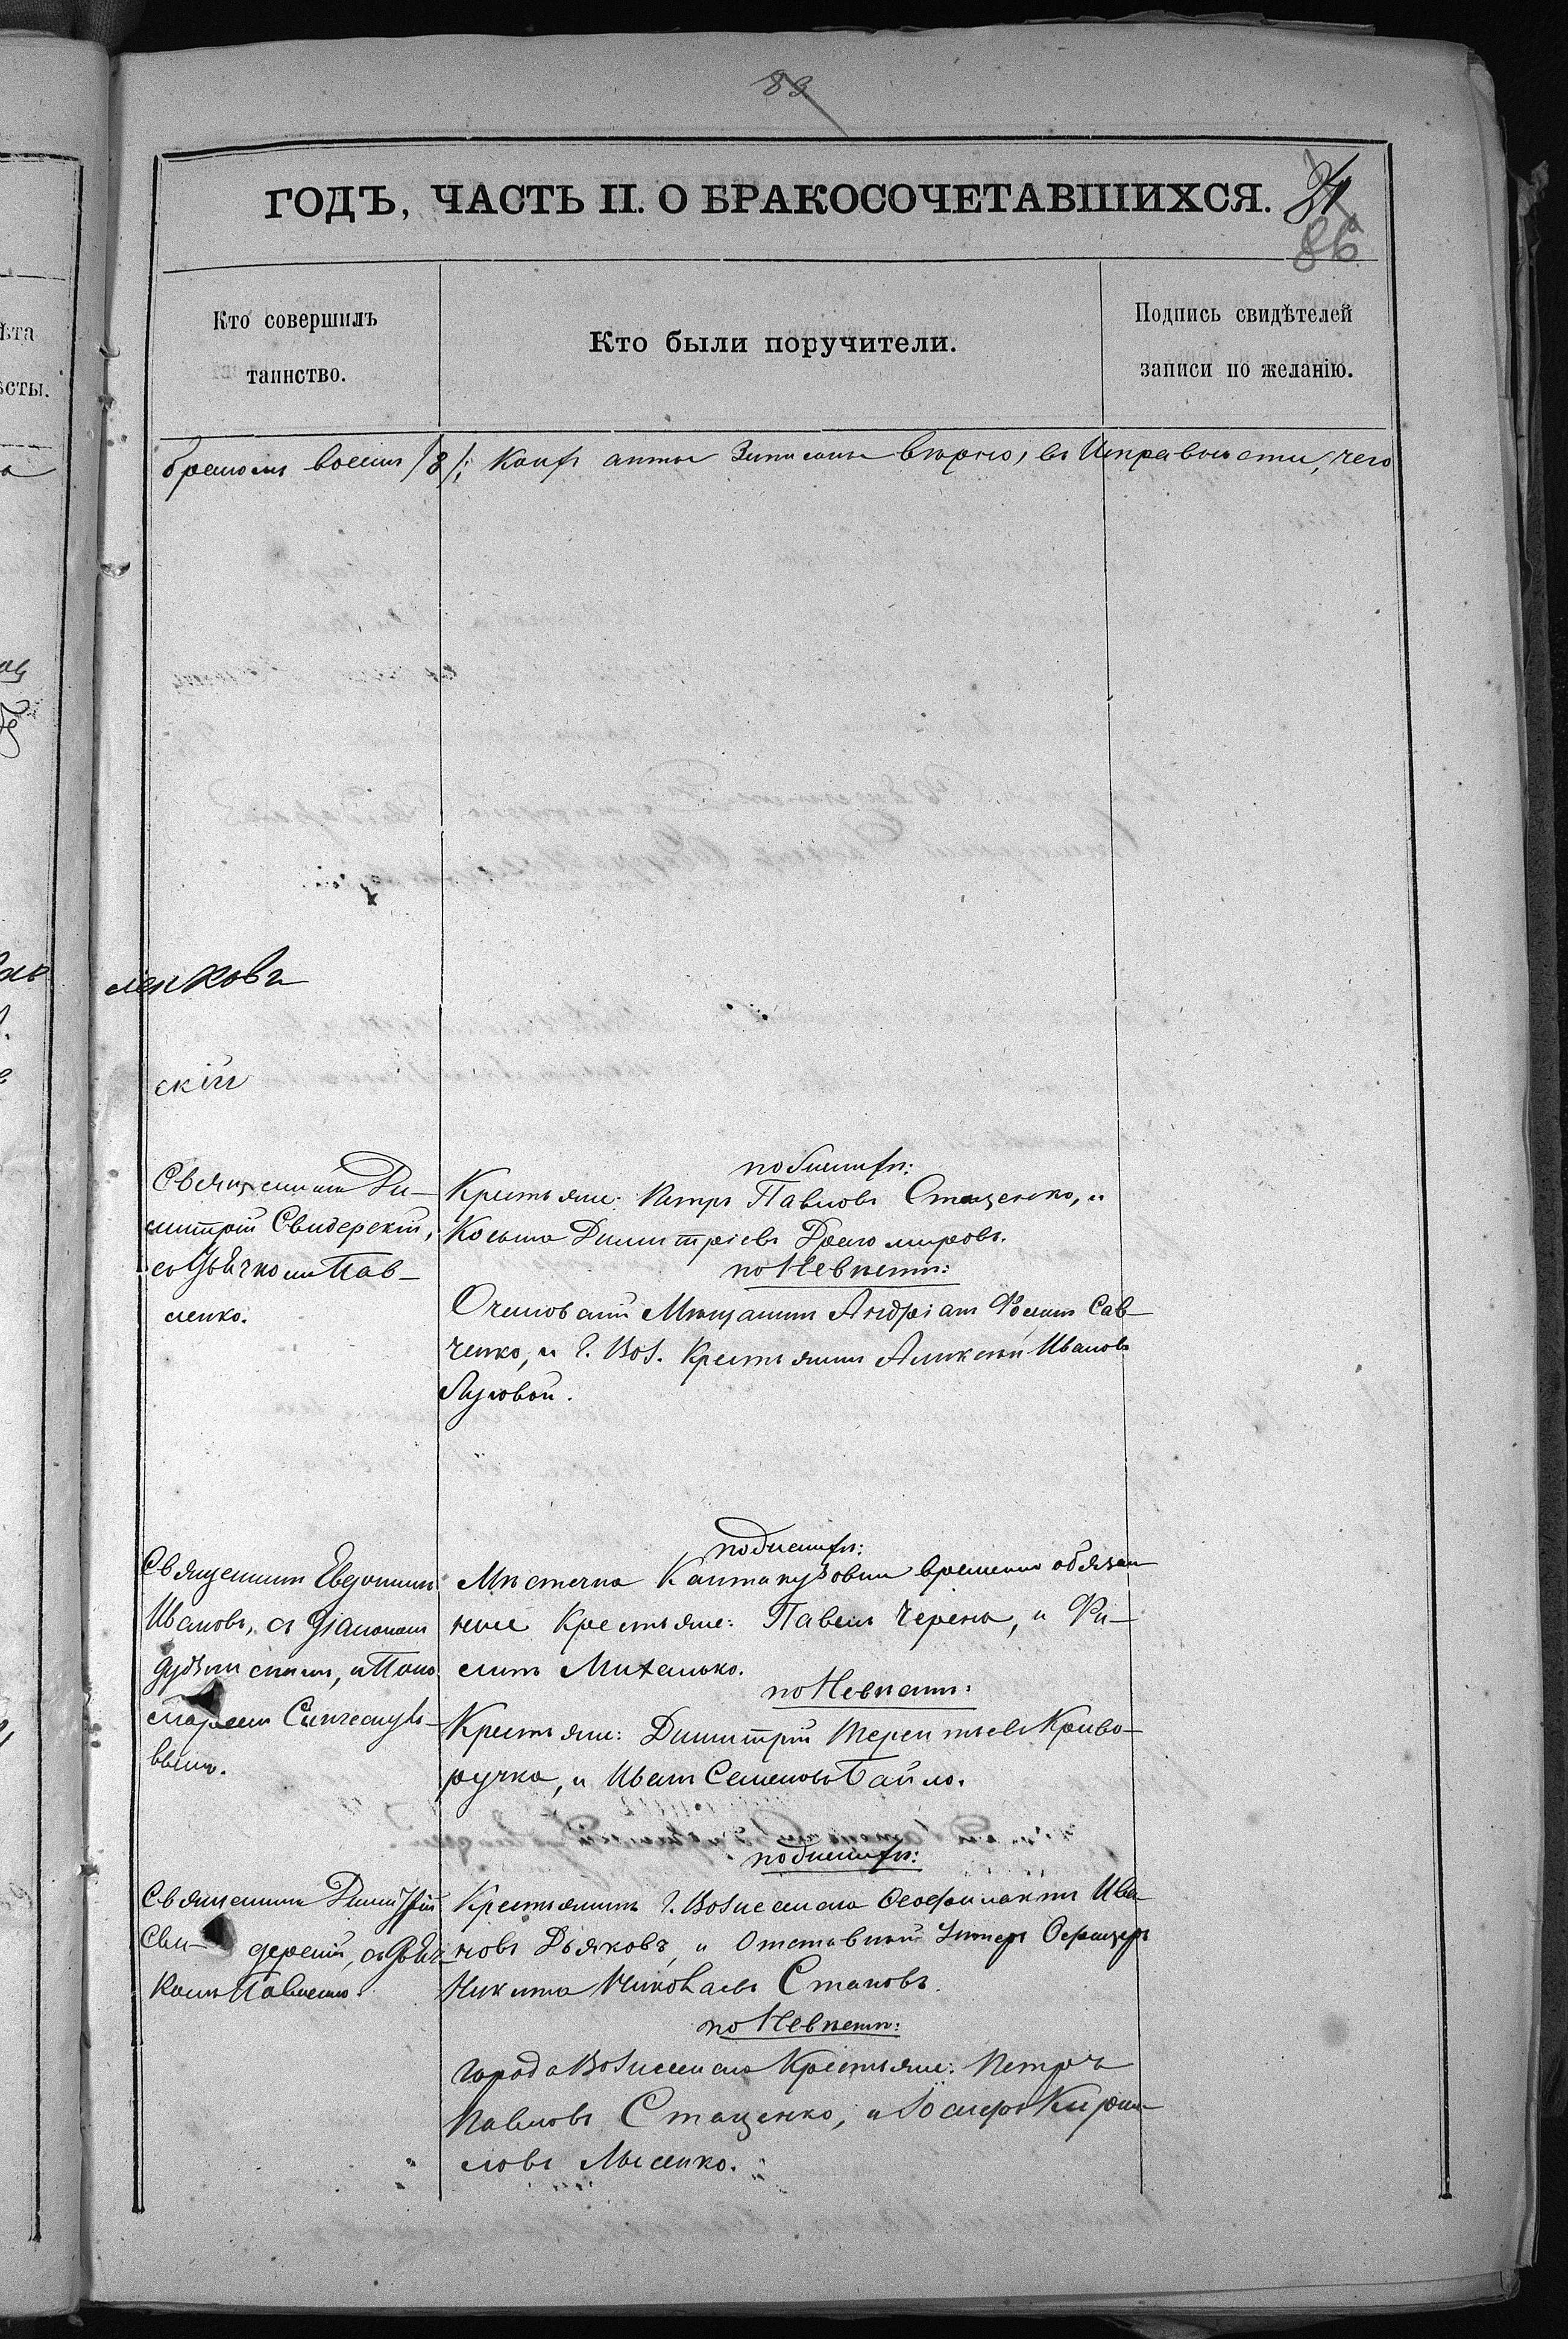 83
ГОДЪ, ЧАСТЬ II. О БРАКОСОЧЕТАВШИХСЯ.
86
Кто совершилъ
таинство.
Кто были поручители.
Подпись свидѣтелей
записи по желанію.
ѣта
ѣсты.
браковъ восемь /8/; коихъ акты записаны вѣрно, въ Исправности, чего
ленковъ
скій
Священникъ Ди-
митрій Свидерскій,
съ Дьячкомъ Пав-
ленко.
по Женихѣ:
Крестьяне: Петръ Павловъ Стаценко, и
Косьма Димитріевъ Драгомировъ.
по Невѣстѣ:
Очаковскій Мѣщанинъ Андріанъ Фоминъ Сав-
ченко, и г. Воз. Крестьянинъ Алексѣй Ивановъ
Луговой.
Священникъ Евдокимъ
Ивановъ, съ Діакономъ
и Поно-
маремъ
вымъ.
по Женихѣ:
Мѣстечка Кантакузовки временно обязан
ные Крестьяне: Павелъ Черена, и Фи-
липъ Михалько.
по Невѣстѣ:
Крестьяне: Димитрій Терентьевъ Криво-
ручка, и Иванъ Семеновъ Байло.
Священникъ Димитрій
Сви- дерскій, съ Дьяч-
комъ Павленко.
по Женихѣ:
Крестьянинъ г. Вознесенска Ѳеофилактъ Ива
новъ Дьяковъ, и Отставной Унтеръ Офицеръ
Никита Николаевъ Стаповъ.
по Невѣстѣ:
города Вознесенска Крестьяне: Петръ
Павловъ Стаценко, и Іосифъ Кирил-
ловъ Лысенко.